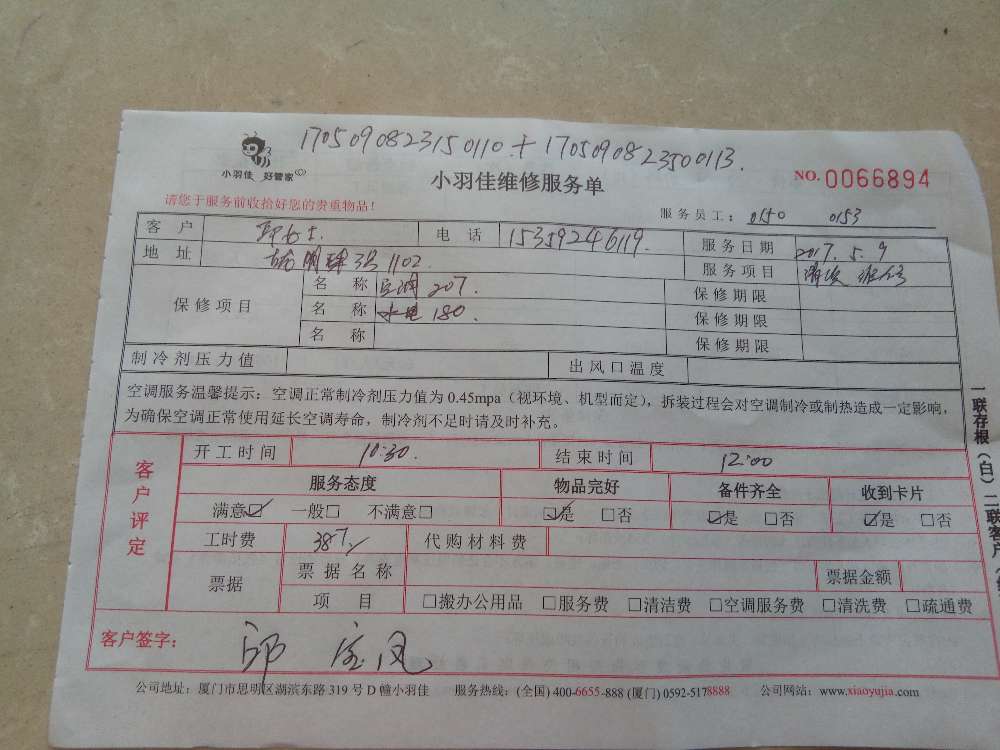 1705090823150110.+1705090823500113.
小羽佳 好管家
小羽佳维修服务单
NO.0066894
请您于服务前收拾好您的贵重物品！
服务员工：0150 0153
客户 电话 15359246119. 服务日期 2017.5.9
地址 3号1102. 服务项目 清洗 维修
保修项目 名称 空调 207. 保修期限
名称 水电 180. 保修期限
名称 保修期限
制冷剂压力值 出风口温度
空调服务温馨提示：空调正常制冷剂压力值为0.45mpa（视环境、机型而定），拆装过程会对空调制冷或制热造成一定影响，
为确保空调正常使用延长空调寿命，制冷剂不足时请及时补充。
客户评定
开工时间 10:30. 结束时间 12:00
服务态度 物品完好 备件齐全 收到卡片
满意☑ 一般□ 不满意□ ☑是 □否 ☑是 □否 ☑是 □否
工时费 387 代购材料费
票据 票据名称 票据金额
项目 □搬办公用品 □服务费 □清洁费 □空调服务费 □清洗费 □疏通费
客户签字：
公司地址：厦门市思明区湖滨东路319号D幢小羽佳 服务热线：(全国) 400-6655-888 (厦门) 0592-5178888 公司网站：www.xiaoyujia.com
一联存根（白）二联客户